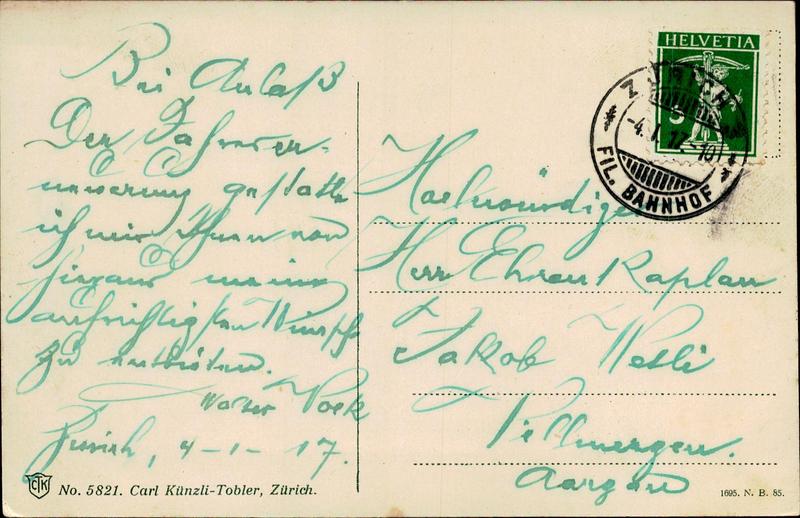 Bei Anlaß
Der Jahreser-
neuerung gestatte
ich mir Ihnen von
hieraus meine
aufrichtigsten Wünsche
zu entbieten.
Walter Voek
Zürich, 4-1-17.
HELVETIA
5
ZÜRICH
-4.I.17.-10
FIL. BAHNHOF
Hochwürdige
Herr Ehren Kaplan
Jakob Wetli
Villmergen.
Aargau
CTK
No. 5821. Carl Künzli-Tobler, Zürich.
1695. N. B. 85.